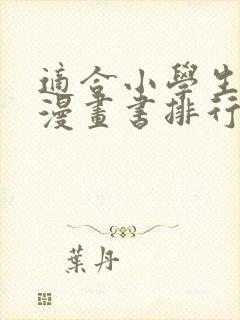 適合小學生
漫畫書排行
葉丹